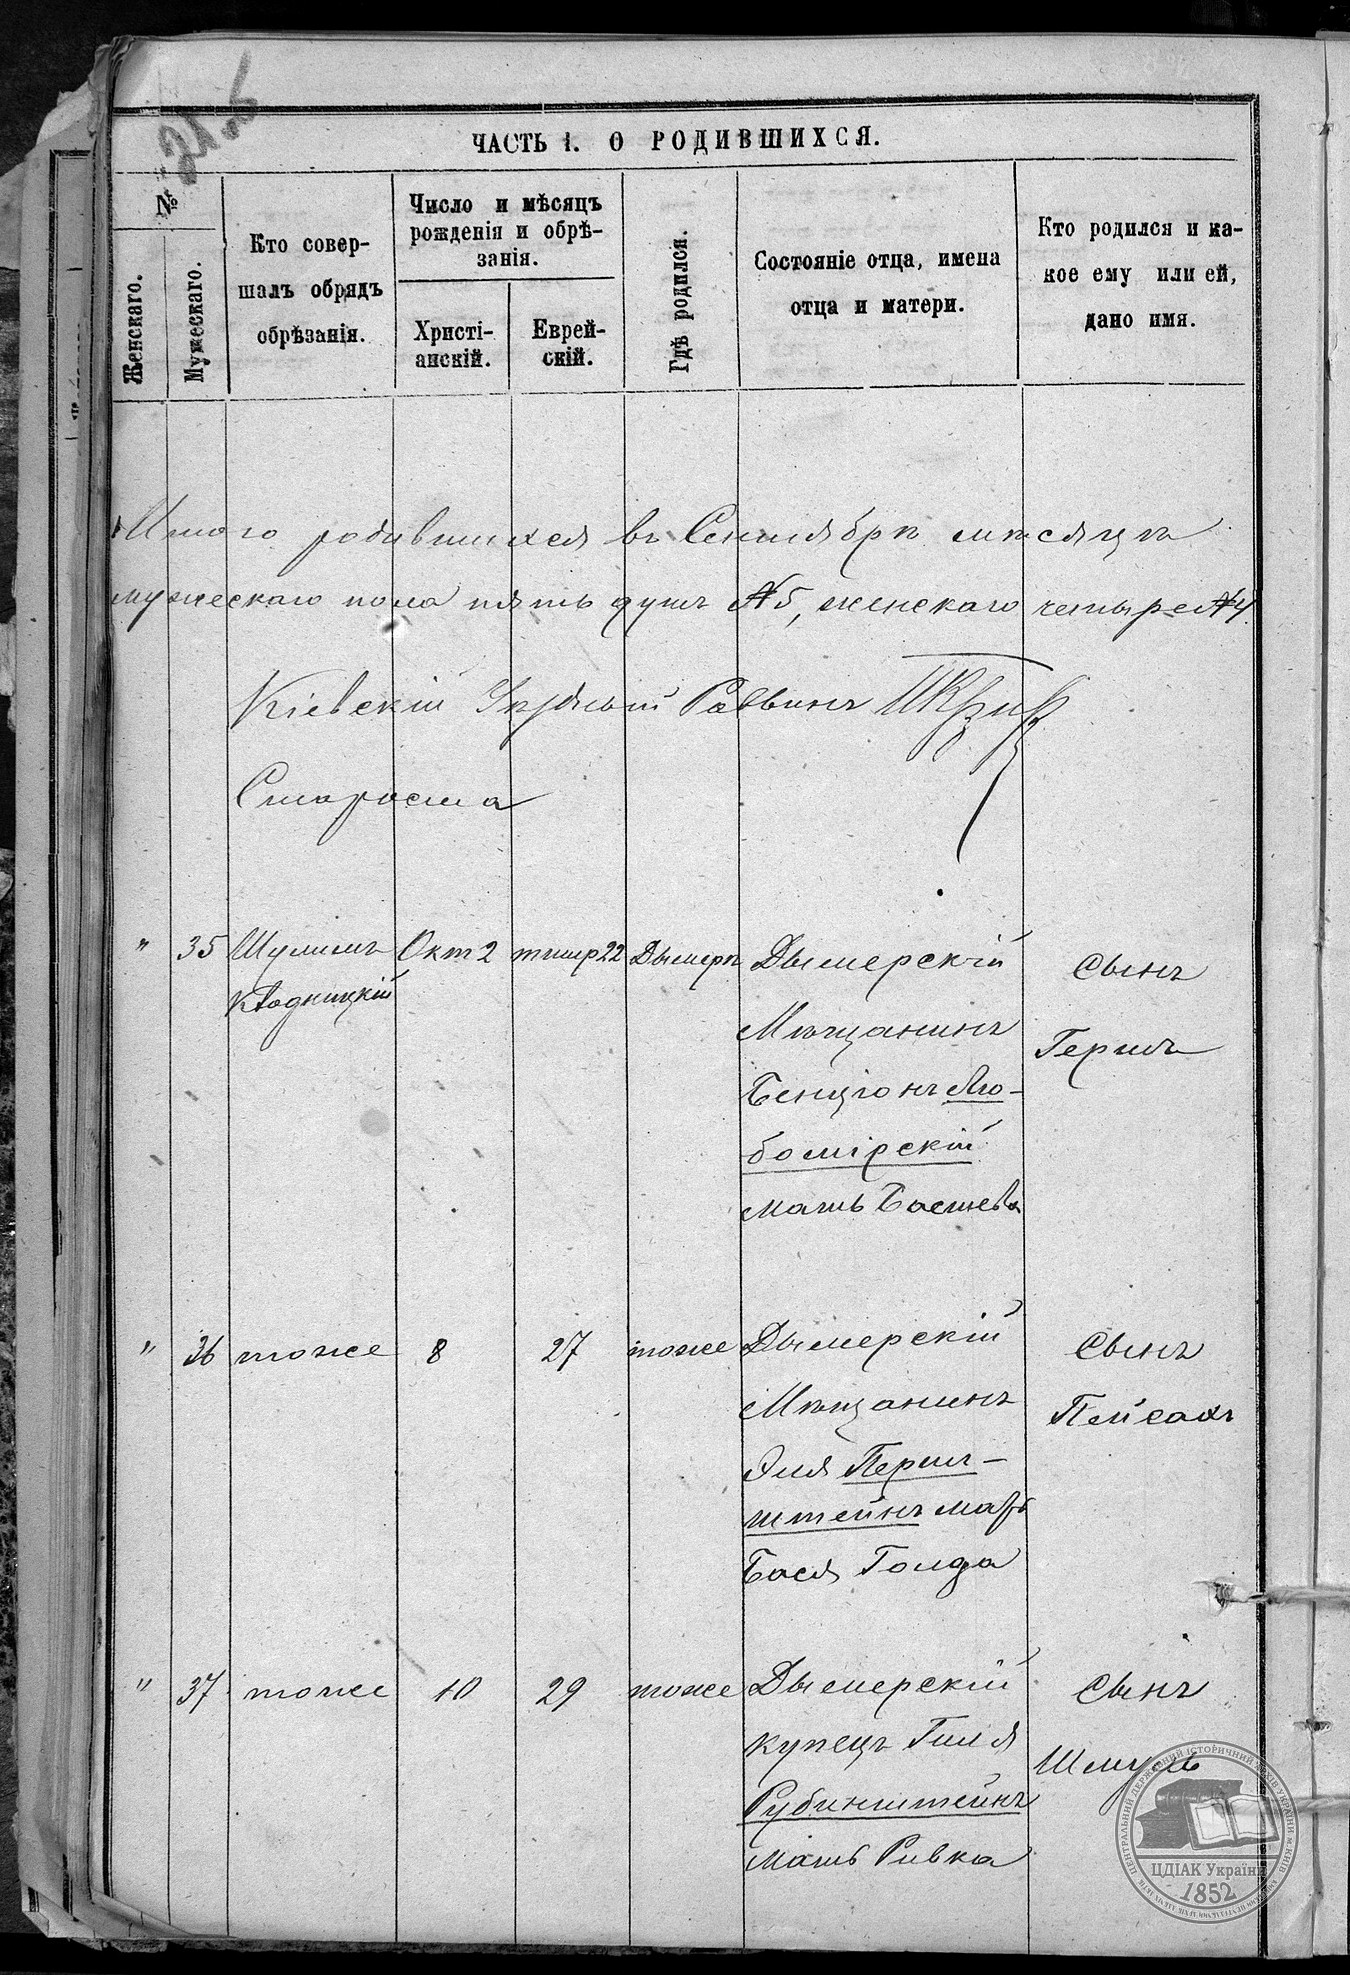 ЧАСТЬ I. О РОДИВШИХСЯ.
№
Женскаго.
Мужескаго.
Кто совер-
шалъ обрядъ
обрѣзанія.
Число и мѣсяцъ
рожденія и обрѣ-
занія.
Христі-
анскій.
Еврей-
скій.
Гдѣ родился.
Состояніе отца, имена
отца и матери.
Кто родился и ка-
кое ему или ей,
дано имя.
Итого родившихся въ Сентябрѣ мѣсяцѣ
мужескаго пола пять душъ №5, женскаго четыре №4.
Кіевскій Уѣздный Раввинъ
Староста
" 35 Шулимъ Окт 2 тишр 22 Дымерѣ
Дымерскій
Мѣщанинъ
Бенціонъ Лю-
бомірскій
мать Басшева
Сынъ
Гершъ
" 36 тоже 8 27 тоже
Дымерскій
Мѣщанинъ
Эля Перль-
штейнъ мать
Бася Голда
Сынъ
Пейсахъ
" 37 тоже 10 29 тоже
Дымерскій
купецъ Гилля
Рубинштейнъ
мать Ривка
Сынъ
Шмуль
ЦЕНТРАЛЬНИЙ ДЕРЖАВНИЙ ІСТОРИЧНИЙ АРХІВ УКРАЇНИ, м. КИЇВ
ЦДІАК України
1852